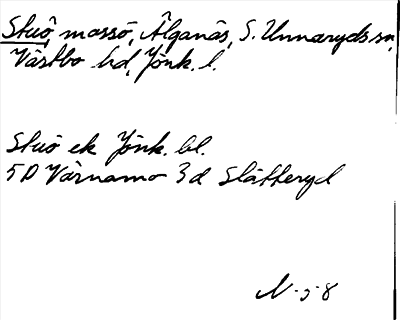 Stuö, mossö, Älganäs, S. Unnaryds sn,
Västbo hd, Jönk. l.
Stuö ek Jönk. bl.
5D Värnamo 3d Slätteryd
N-5-8